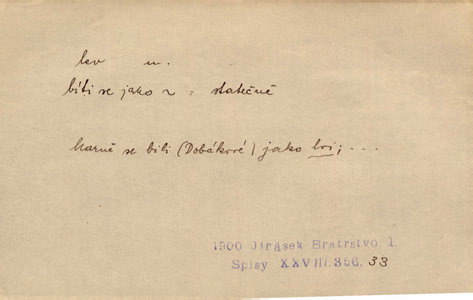 lev m.
bíti se jako ~ : statečně
Marně se bili (Dobákové) jako lvi; ...
1900 Jirásek Bratrstvo 1.
Spisy XXVIII. 356. 33